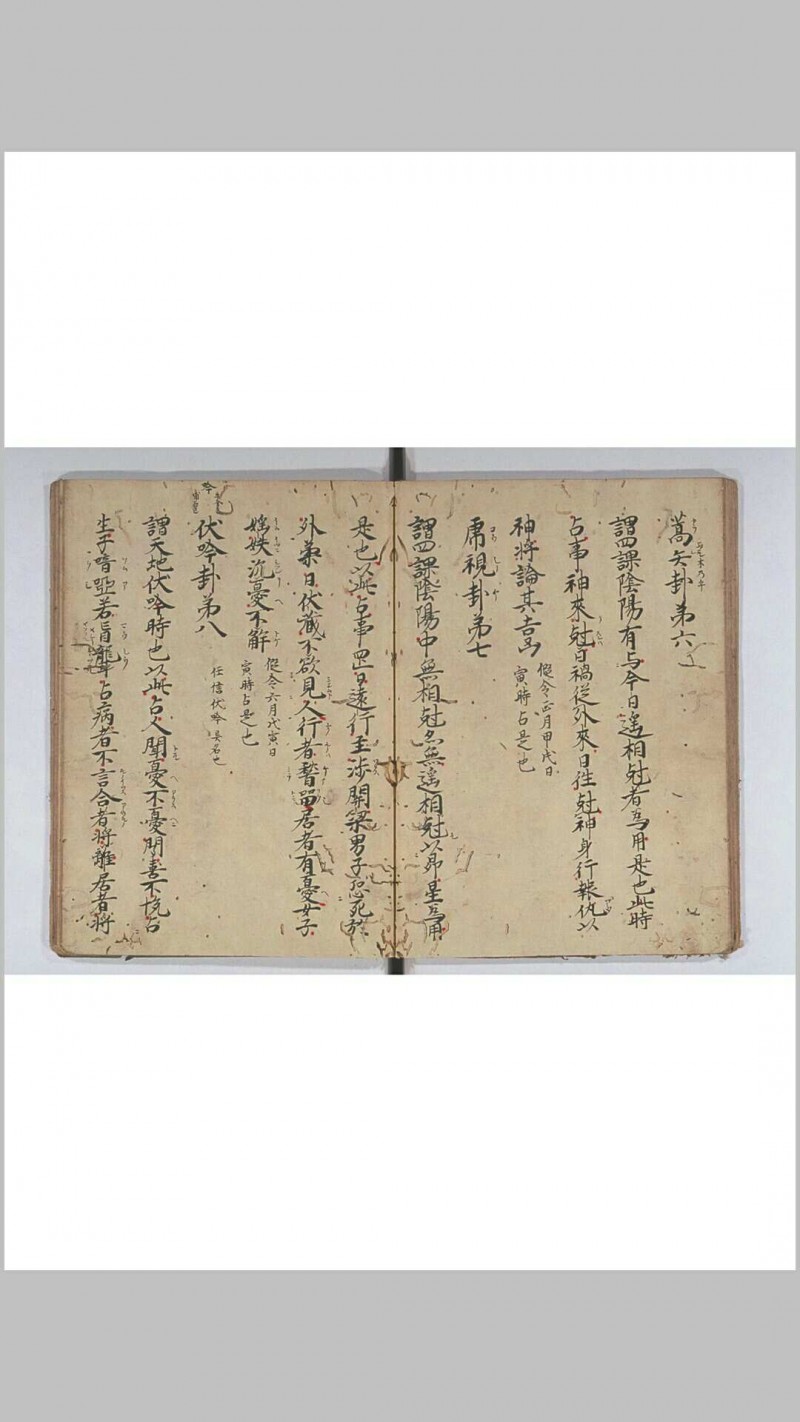 蒿矢卦第六
謂四課陰陽有与今日遥相尅者為用是也此時
占事神來尅日禍從外來日往尅神身行報仇以
神将論其吉凶
假令正月甲戌日
寅時占是也
虎視卦第七
謂四課陰陽中無相尅又無遥相尅以昴星為用
是也以此占事罡日遠行至渉關梁男子恐死於
外柔日伏藏不欲見人行者稽留居者有憂女子
婬泆沉憂不解
假令六月戊寅日
寅時占是也
伏吟卦第八
任信伏吟 異名也
謂天地伏吟時也以此占人聞憂不憂聞喜不悦占
生子喑啞若盲聾占病者不言合者将離居者将